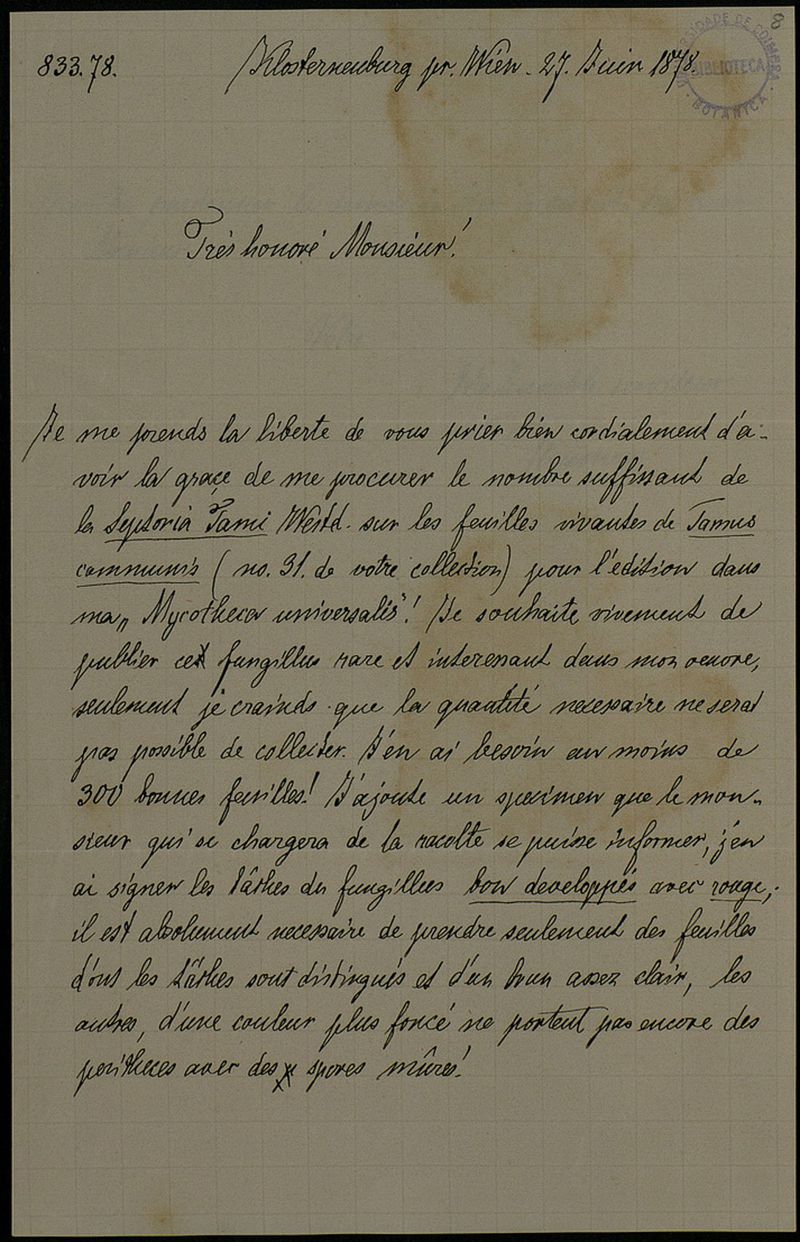 8
UNIVERSIDADE DE COIMBRA
BIBLIOTECA
BOTANICA
833.78. Klosterneuburg pr. Wien. 27. Juin 1878.
Très honoré Monsieur!
Je me prends la liberte de vous prier bien cordialement d'a-
voir la graçe de me procurer le nombre suffissant de
la Septoria Tami Westd. sur les feuilles vivantes de Tamus
communis (no. 31. de votre collection) pour l'edition dans
ma „Mycotheca universalis"! Je souhaite vivement de
publier cet fungillus rare et interessant dans mon oeuvre,
seulement je crainds que la quantité necessaire ne serat
pas possible de collecter. J'en ai besoin au moins de
300 bonnes feuilles! J'ajoute un specimen que le mon-
sieur qui se chargera de la racolte se puisse informer, j'en
ai signer les tâthes du fungillus bon developpés avec rouge,
il est absolument necessaire de prendre seulement des feuilles
d'ont les tâthes sont distingués et d'un brun assez clair, les
autres, d'une couleur plus foncé ne portent pas encore des
peritheces avec des spores mûres!